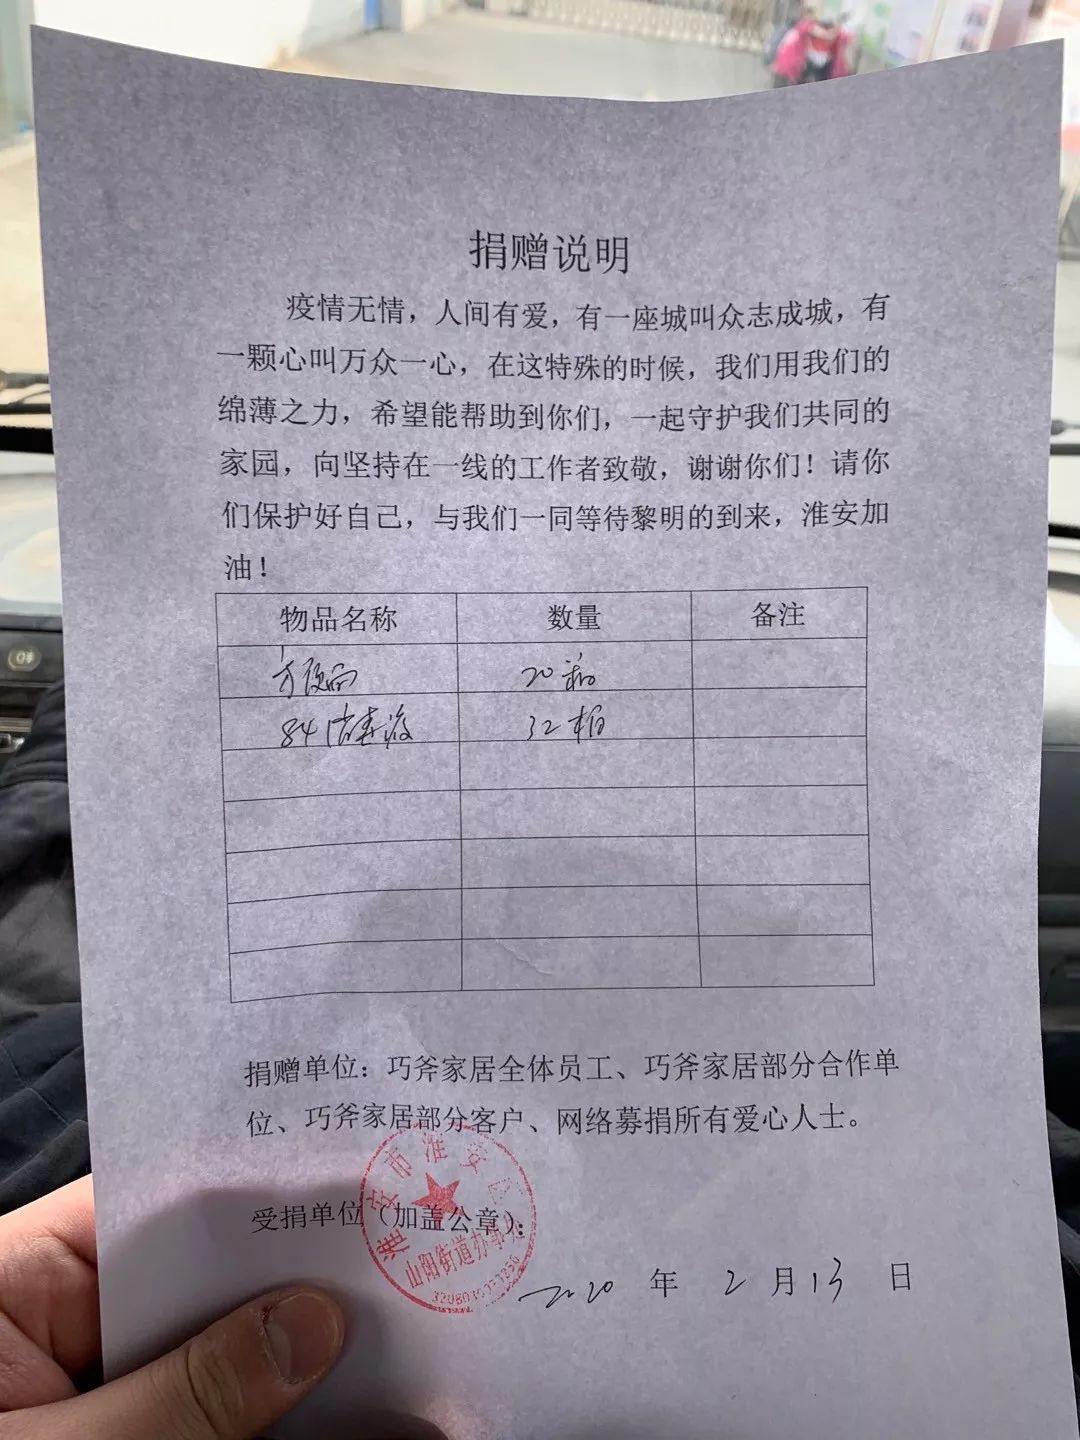 捐赠说明
疫情无情，人间有爱，有一座城叫众志成城，有
一颗心叫万众一心，在这特殊的时候，我们用我们的
绵薄之力，希望能帮助到你们，一起守护我们共同的
家园，向坚持在一线的工作者致敬，谢谢你们！请你
们保护好自己，与我们一同等待黎明的到来，淮安加
油！
物品名称 数量 备注
方便面 20箱
84消毒液 32箱
捐赠单位：巧斧家居全体员工、巧斧家居部分合作单
位、巧斧家居部分客户、网络募捐所有爱心人士。
淮安市淮安区
受捐单位（加盖公章）：
山阳街道办事处
2020 年 2 月 13 日